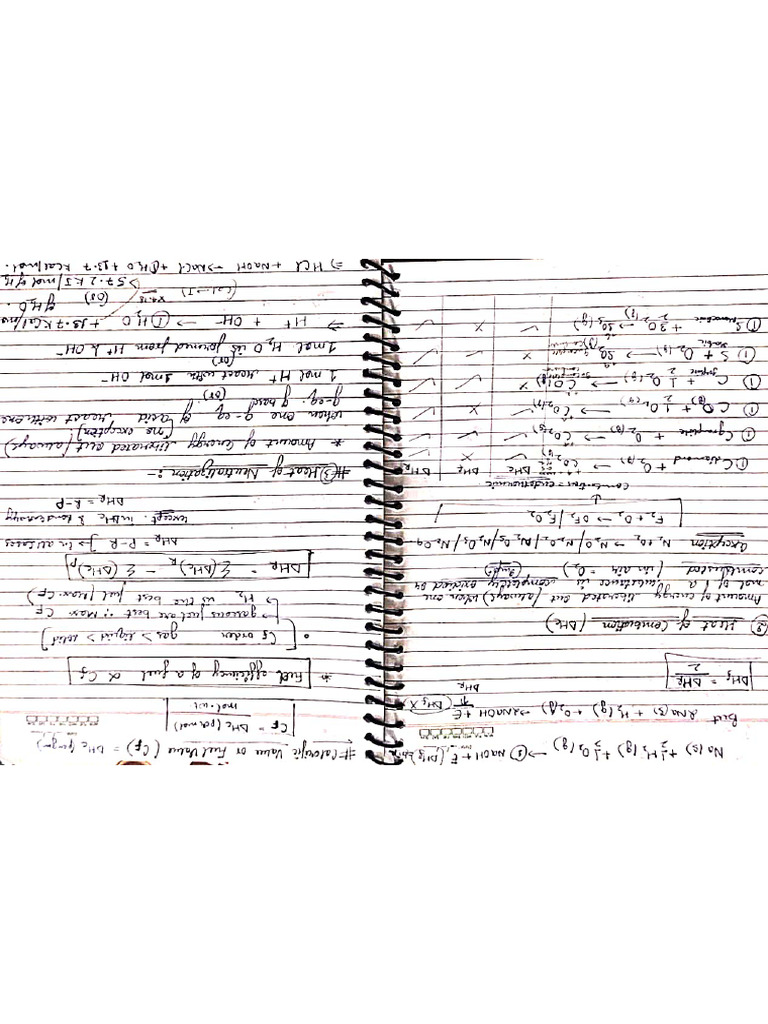 Na(s) + 1/2 H2(g) + 1/2 O2(g) → ① NaOH + E (ΔHf)
But 2Na(s) + H2(g) + O2(g) → 2NaOH + E
ΔHR (ΔHf ×
ΔHf = ΔHR / 2
② Heat of Combustion (ΔHc)
Amount of energy liberated out (always) when one
mol of a substance is completely oxidised or
combusted (in air = O2)
exception N2 + O2 → N2O / N2O2 / N2O3 / N2O4
F2 + O2 → OF2 / F2O2
↓
Combustion = endothermic
ΔHc ΔHf ΔHR
① C diamond + O2(g) → CO2(g) ✓ ✓
① C graphite + O2(g) → CO2(g) ✓ ✓ ✓
CO(g) + 1/2 O2(g) → CO2(g) ✓ × ✓
① C graphite + 1/2 O2(g) → CO(g) × ✓ ✓
① S Rhombic + O2(g) → SO2(g) ✓ ✓ ✓
① S Monoclinic + 3/2 O2(g) → SO3(g) ✓ × ✓
# Calorific Value or Fuel Value (CF) = ΔHc (per g)
CF = ΔHc (per mol) / mol. wt
* Fuel efficiency of a fuel ∝ CF
• CF order gas > liquid > solid
→ gaseous fuel are best ∵ Max CF
→ H2 is the best fuel (Max. CF)
ΔHR = Σ(ΔHc)R − Σ(ΔHc)P
ΔHR = P-R ] → in all cases
except in ΔHc & bond energy
ΔHR = R-P
# ③ Heat of Neutralization :-
* Amount of energy liberated out (always)
when one g-eq. of acid react with one [no exception]
g-eq. of base
(or)
1 mol H+ react with 1 mol OH-
(or)
1 mol H2O is formed from H+ & OH-
⇒ H+ + OH- → ① H2O + 13.7 kcal/mol
of H2O.
(cal → J) ×4.18 (or)
→ 57.2 kJ/mol of H2O
⇒ HCl + NaOH → NaCl + ① H2O + 13.7 kcal/mol.